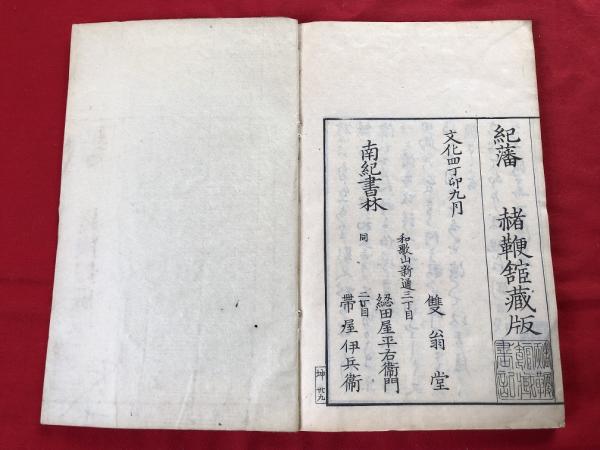 紀藩 赭鞭舘藏版
文化四丁卯九月
雙翁堂
南紀書林 和歌山新通三丁目 綛田屋平右衛門
同 二丁目 帯屋伊兵衛
坤 廿九